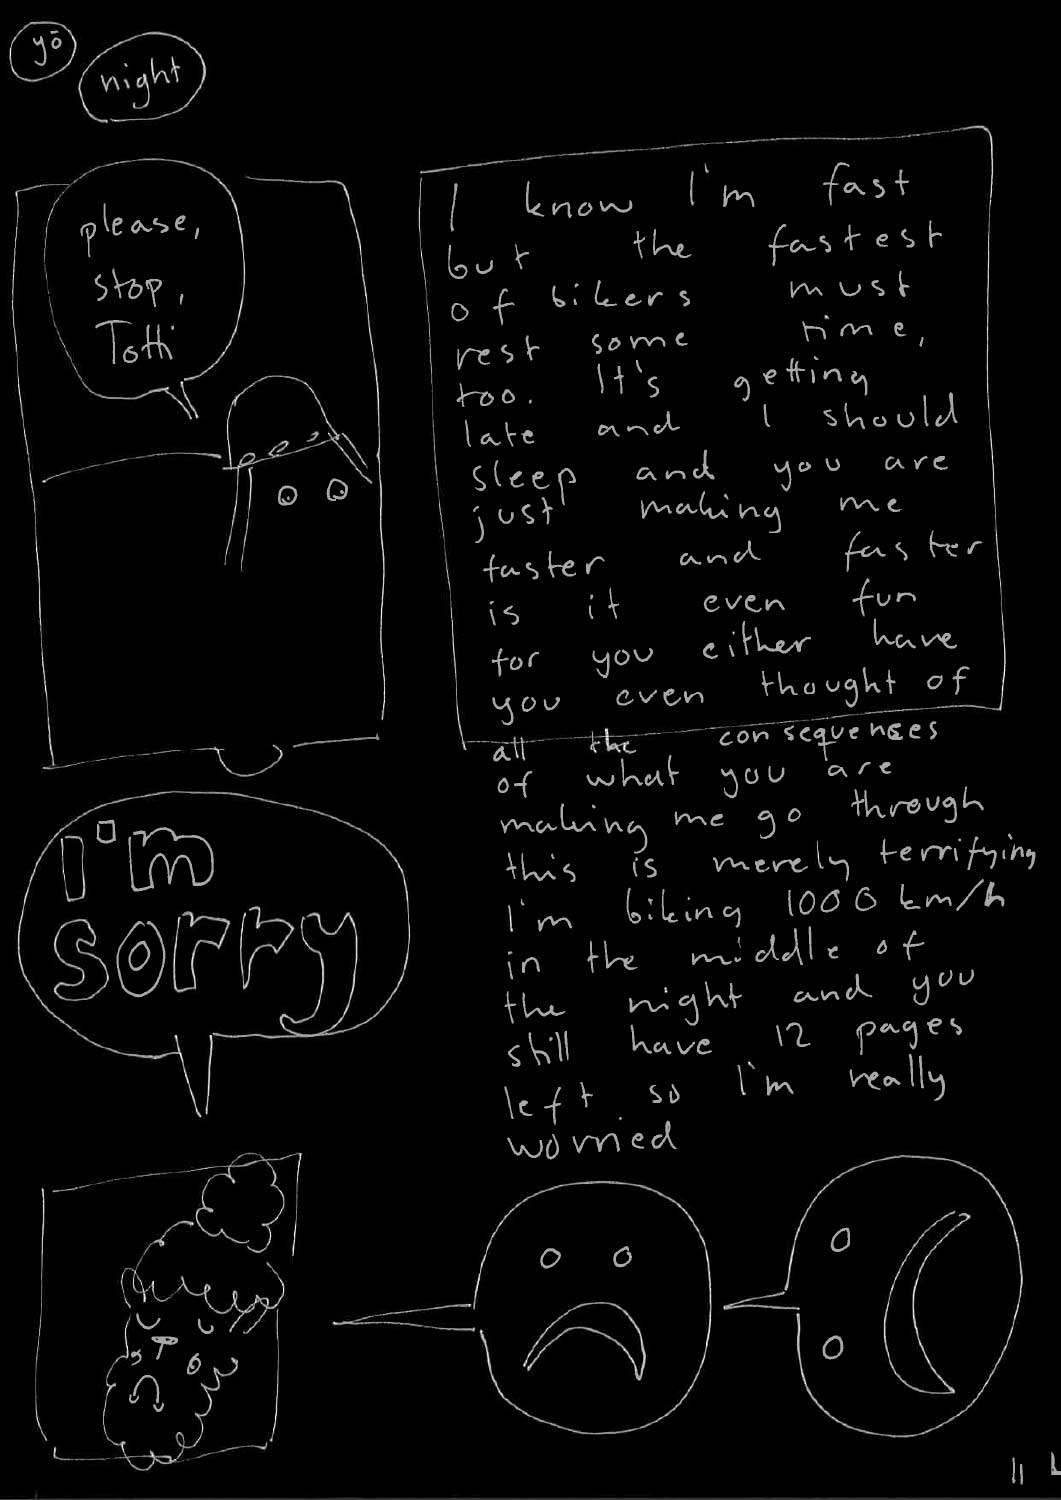 yö
night
please,
stop,
Totti
I know I'm fast
but the fastest
of bikers must
rest some time,
too. It's getting
late and I should
sleep and you are
just making me
faster and faster
is it even fun
for you either have
you even thought of
all the consequences
of what you are
making me go through
this is merely terrifying
I'm biking 1000 km/h
in the middle of
the night and you
still have 12 pages
left so I'm really
worried
I'm
sorry